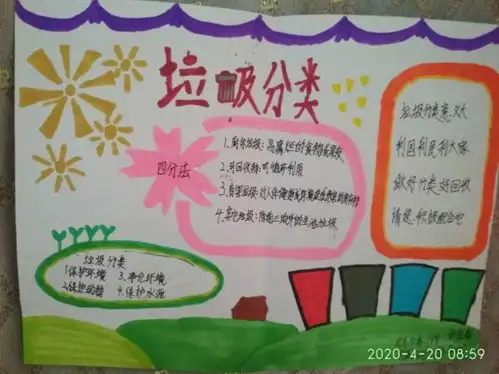 垃圾分类
四分法
1.厨余垃圾：易腐烂的食物或果皮
2.可回收物：可循环利用
3.有害垃圾：对人体健康或环境
4.其它垃圾：除前三项外的生活垃圾
垃圾分类意义大
利国利民利大家
做好分类好回收
请您积极配合它
垃圾分类
1.保护环境 3.净化环境
2.保护动物 4.保护水源
2020-4-20 08:59